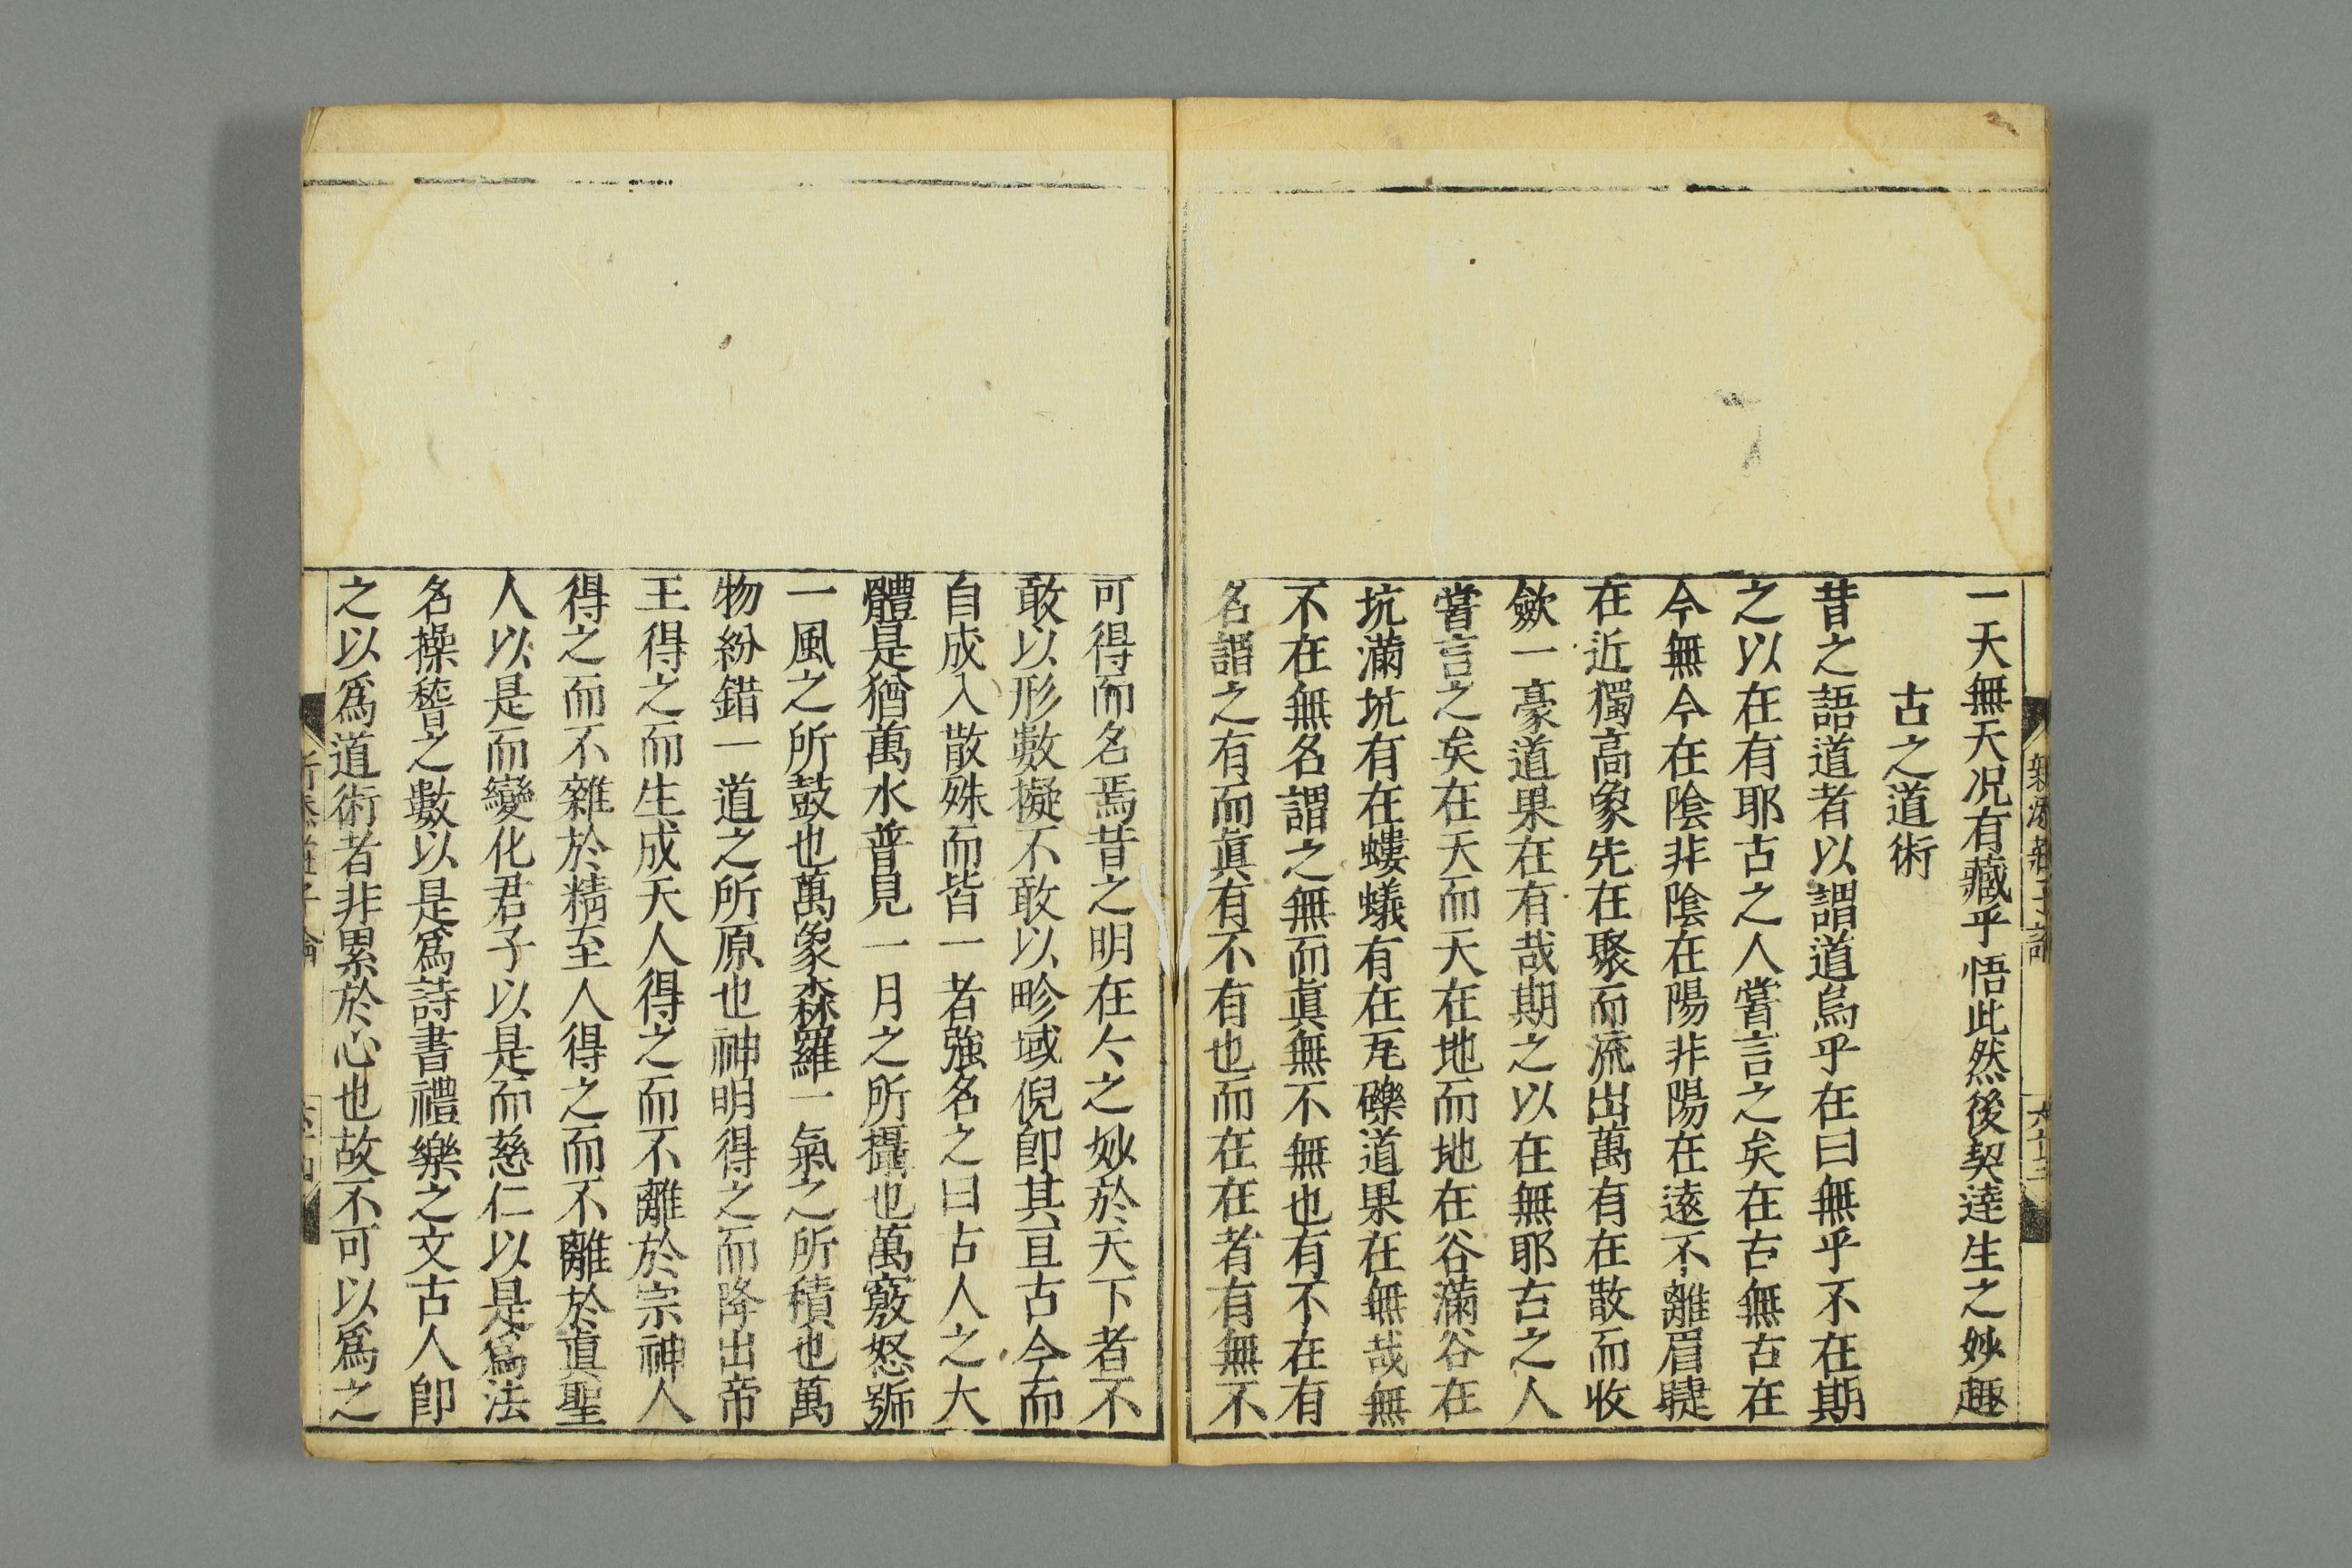 一天無天况有藏乎悟此然後契逹生之妙趣
古之道術
昔之語道者以謂道烏乎在曰無乎不在期
之以在有耶古之人嘗言之矣在古無古在
今無今在陰非陰在陽非陽在逺不離眉睫
在近獨高象先在聚而流出萬有在散而收
歛一豪道果在有哉期之以在無耶古之人
嘗言之矣在天而天在地而地在谷滿谷在
坑滿坑有在螻蟻有在瓦礫道果在無哉無
不在無名謂之無而眞無不無也有不在有
名謂之有而眞有不有也而在在者有無不
可得而名焉昔之明在今之妙於天下者不
敢以形數擬不敢以畛域倪卽其亘古今而
自成入散殊而皆一者強名之曰古人之大
體是猶萬水普見一月之所攝也萬竅怒號
一風之所鼓也萬象森羅一氣之所積也萬
物紛錯一道之所原也神明得之而降出帝
王得之而生成天人得之而不離於宗神人
得之而不雜於精至人得之而不離於眞聖
人以是而變化君子以是而慈仁以是爲法
名操稽之數以是爲詩書禮樂之文古人卽
之以爲道術者非累於心也故不可以爲之